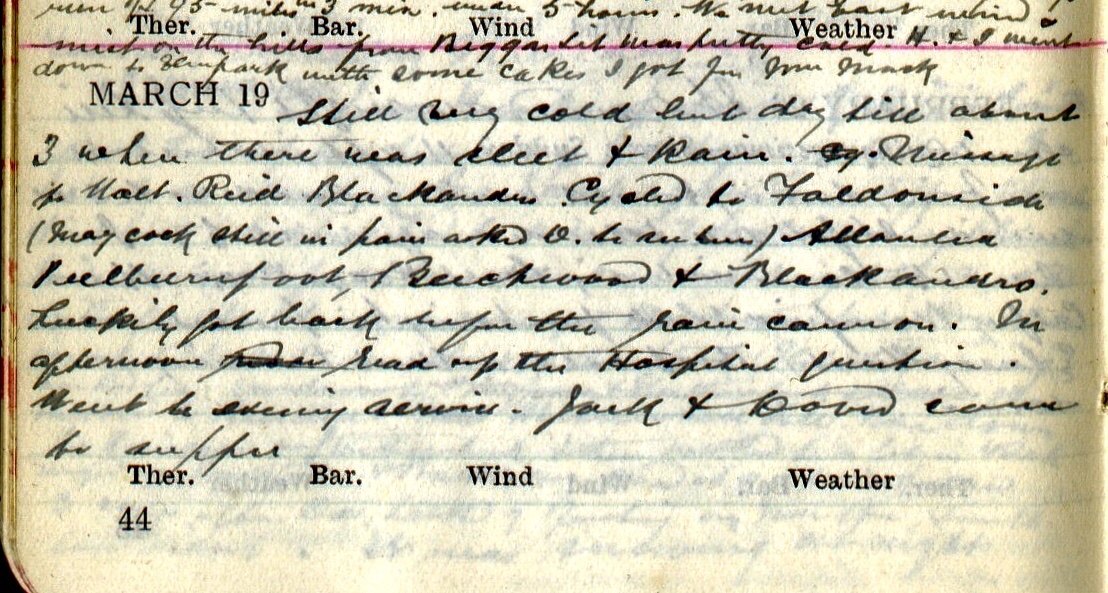 run of 95 miles in 3 min. under 5 hours. We met East wind &
Ther. Bar. Wind Weather
mist on the hills from Biggar but was pretty cold. H. & I went
down to with some cakes I got for Mrs
MARCH 19 Still very cold but dry till about
3 when there was sleet & Rain.
to Walt. Reid Blackandro. Cycled to Faldonside
(Maycock still in pain asked D. to ) Allanlea
Peelburnfoot, Beechwood & Blackandro.
Luckily got back before the rain came on. In
afternoon read up the Hospital question.
Went to evening service. Jack & David came
to supper
Ther. Bar. Wind Weather
44